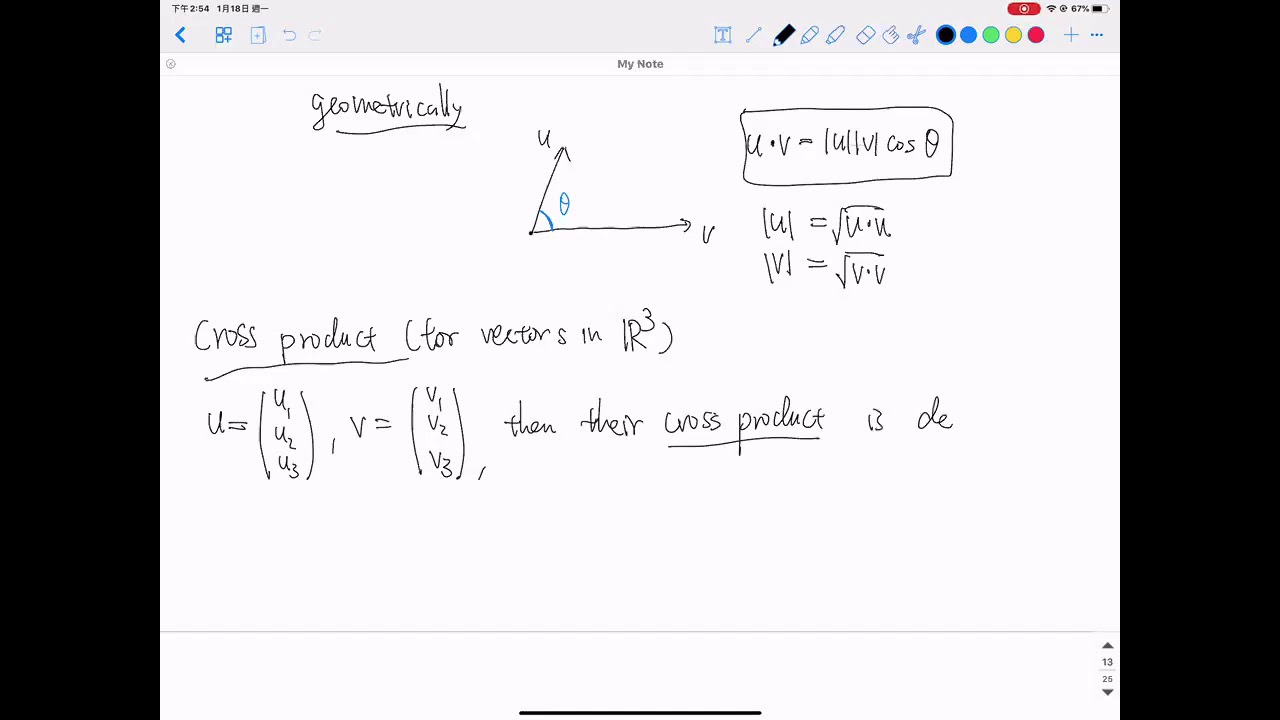 下午2:54 1月18日 週一
67%
My Note
geometrically
u
θ
v
u·v = |u||v| cos θ
|u| = √u·u
|v| = √v·v
Cross product (for vectors in ℝ³)
u = (u₁ u₂ u₃), v = (v₁ v₂ v₃), then their cross product is de
13
25